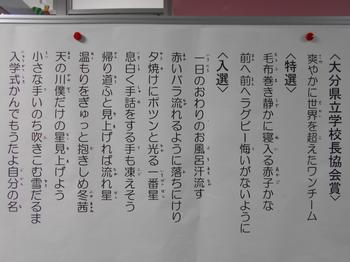 〈大分県立学校長協会賞〉
爽やかに世界を超えたワンチーム
〈特選〉
毛布巻き静かに寝入る赤子かな
前へ前へラグビー悔いがないように
〈入選〉
一日のおわりのお風呂汗流す
赤いバラ流れるように落ちにけり
夕焼けにポツンと光る一番星
息白く手話をする手も凍えそう
帰り道ふと見上げれば流れ星
温もりをぎゅっと抱きしめ冬茜
天の川僕だけの星見上げよう
小さな手いのち吹きこむ雪だるま
入学式かんでもうたよ自分の名